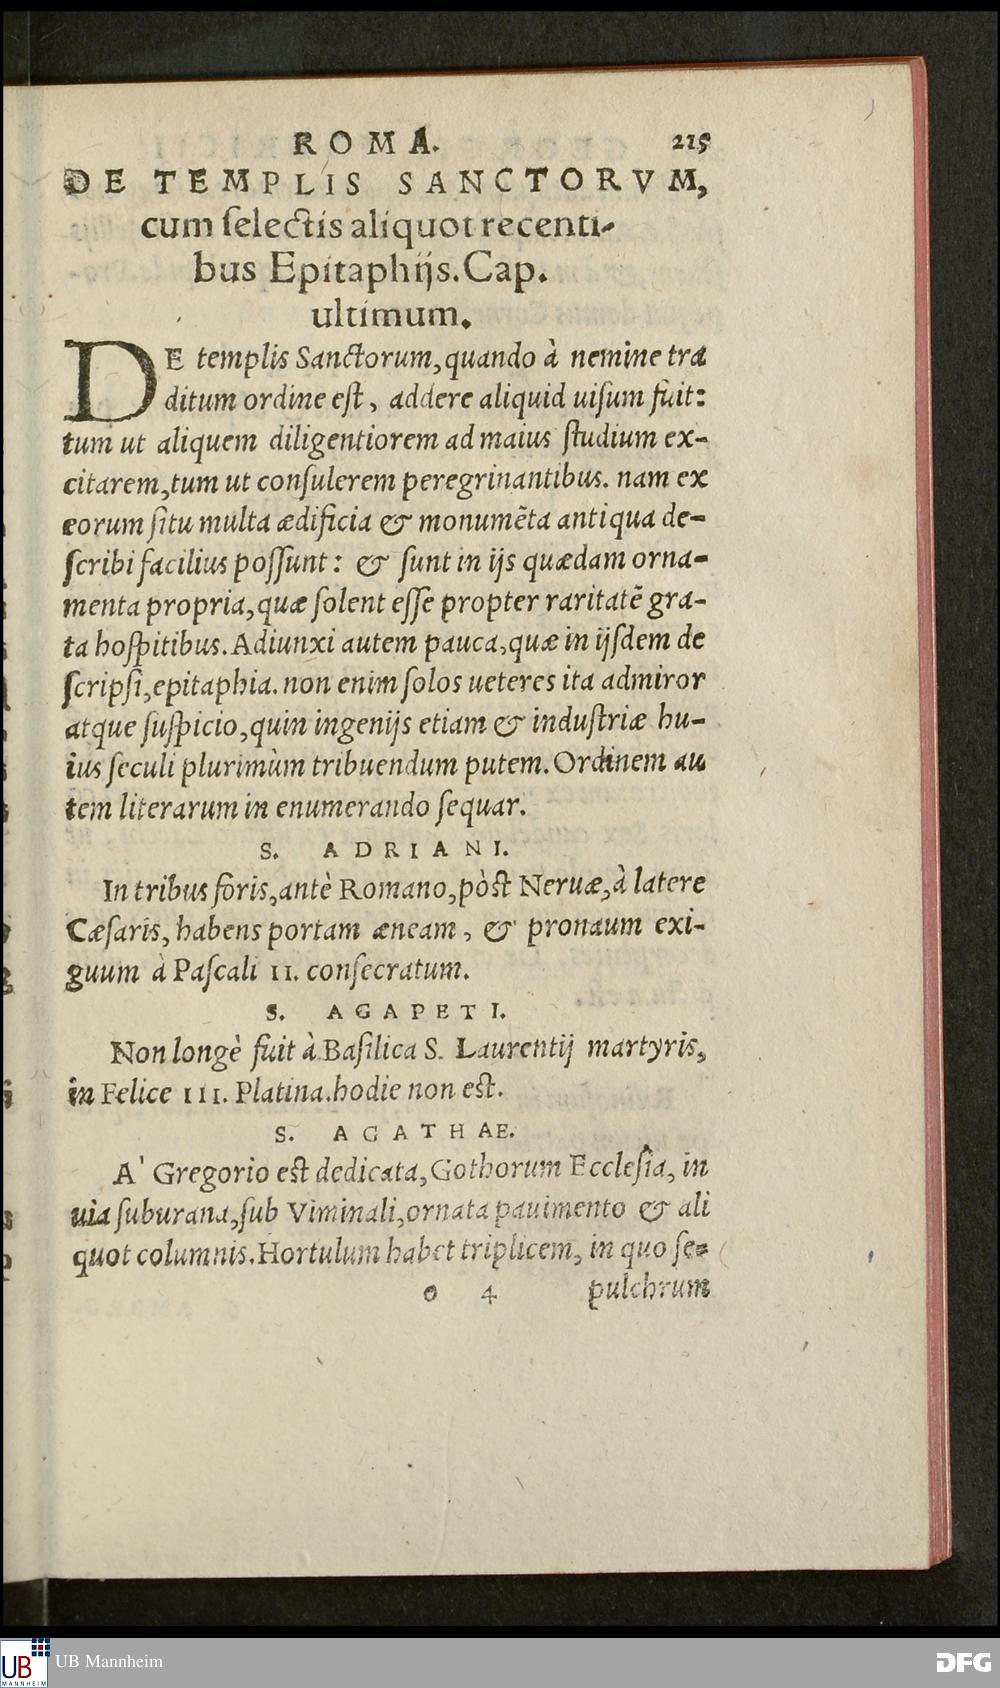 ROMA. 215
DE TEMPLIS SANCTORVM,
cum ſelectis aliquot recenti-
bus Epitaphijs. Cap.
ultimum.
DE templis Sanctorum, quando à nemine tra
ditum ordine eſt, addere aliquid uiſum fuit:
tum ut aliquem diligentiorem ad maius ſtudium ex-
citarem, tum ut conſulerem peregrinantibus. nam ex
eorum ſitu multa ædificia & monumẽta antiqua de-
ſcribi facilius poſſunt: & ſunt in ijs quædam orna-
menta propria, quæ ſolent eſſe propter raritatẽ gra-
ta hoſpitibus. Adiunxi autem pauca, quæ in ijſdem de
ſcripſi, epitaphia. non enim ſolos ueteres ita admiror
atque ſuſpicio, quin ingenijs etiam & induſtriæ hu-
ius ſeculi plurimùm tribuendum putem. Ordinem au
tem literarum in enumerando ſequar.
S. ADRIANI.
In tribus foris, antè Romano, pòſt Neruæ, à latere
Cæſaris, habens portam æneam, & pronaum exi-
guum à Paſcali II. conſecratum.
S. AGAPETI.
Non longè fuit à Baſilica S. Laurentij martyris,
in Felice III. Platina. hodie non eſt.
S. AGATHAE.
A' Gregorio eſt dedicata, Gothorum Eccleſia, in
uia ſuburana, ſub Viminali, ornata pauimento & ali
quot columnis. Hortulum habet triplicem, in quo ſe-
o 4 pulchrum
UB Mannheim
UB
MANNHEIM
DFG